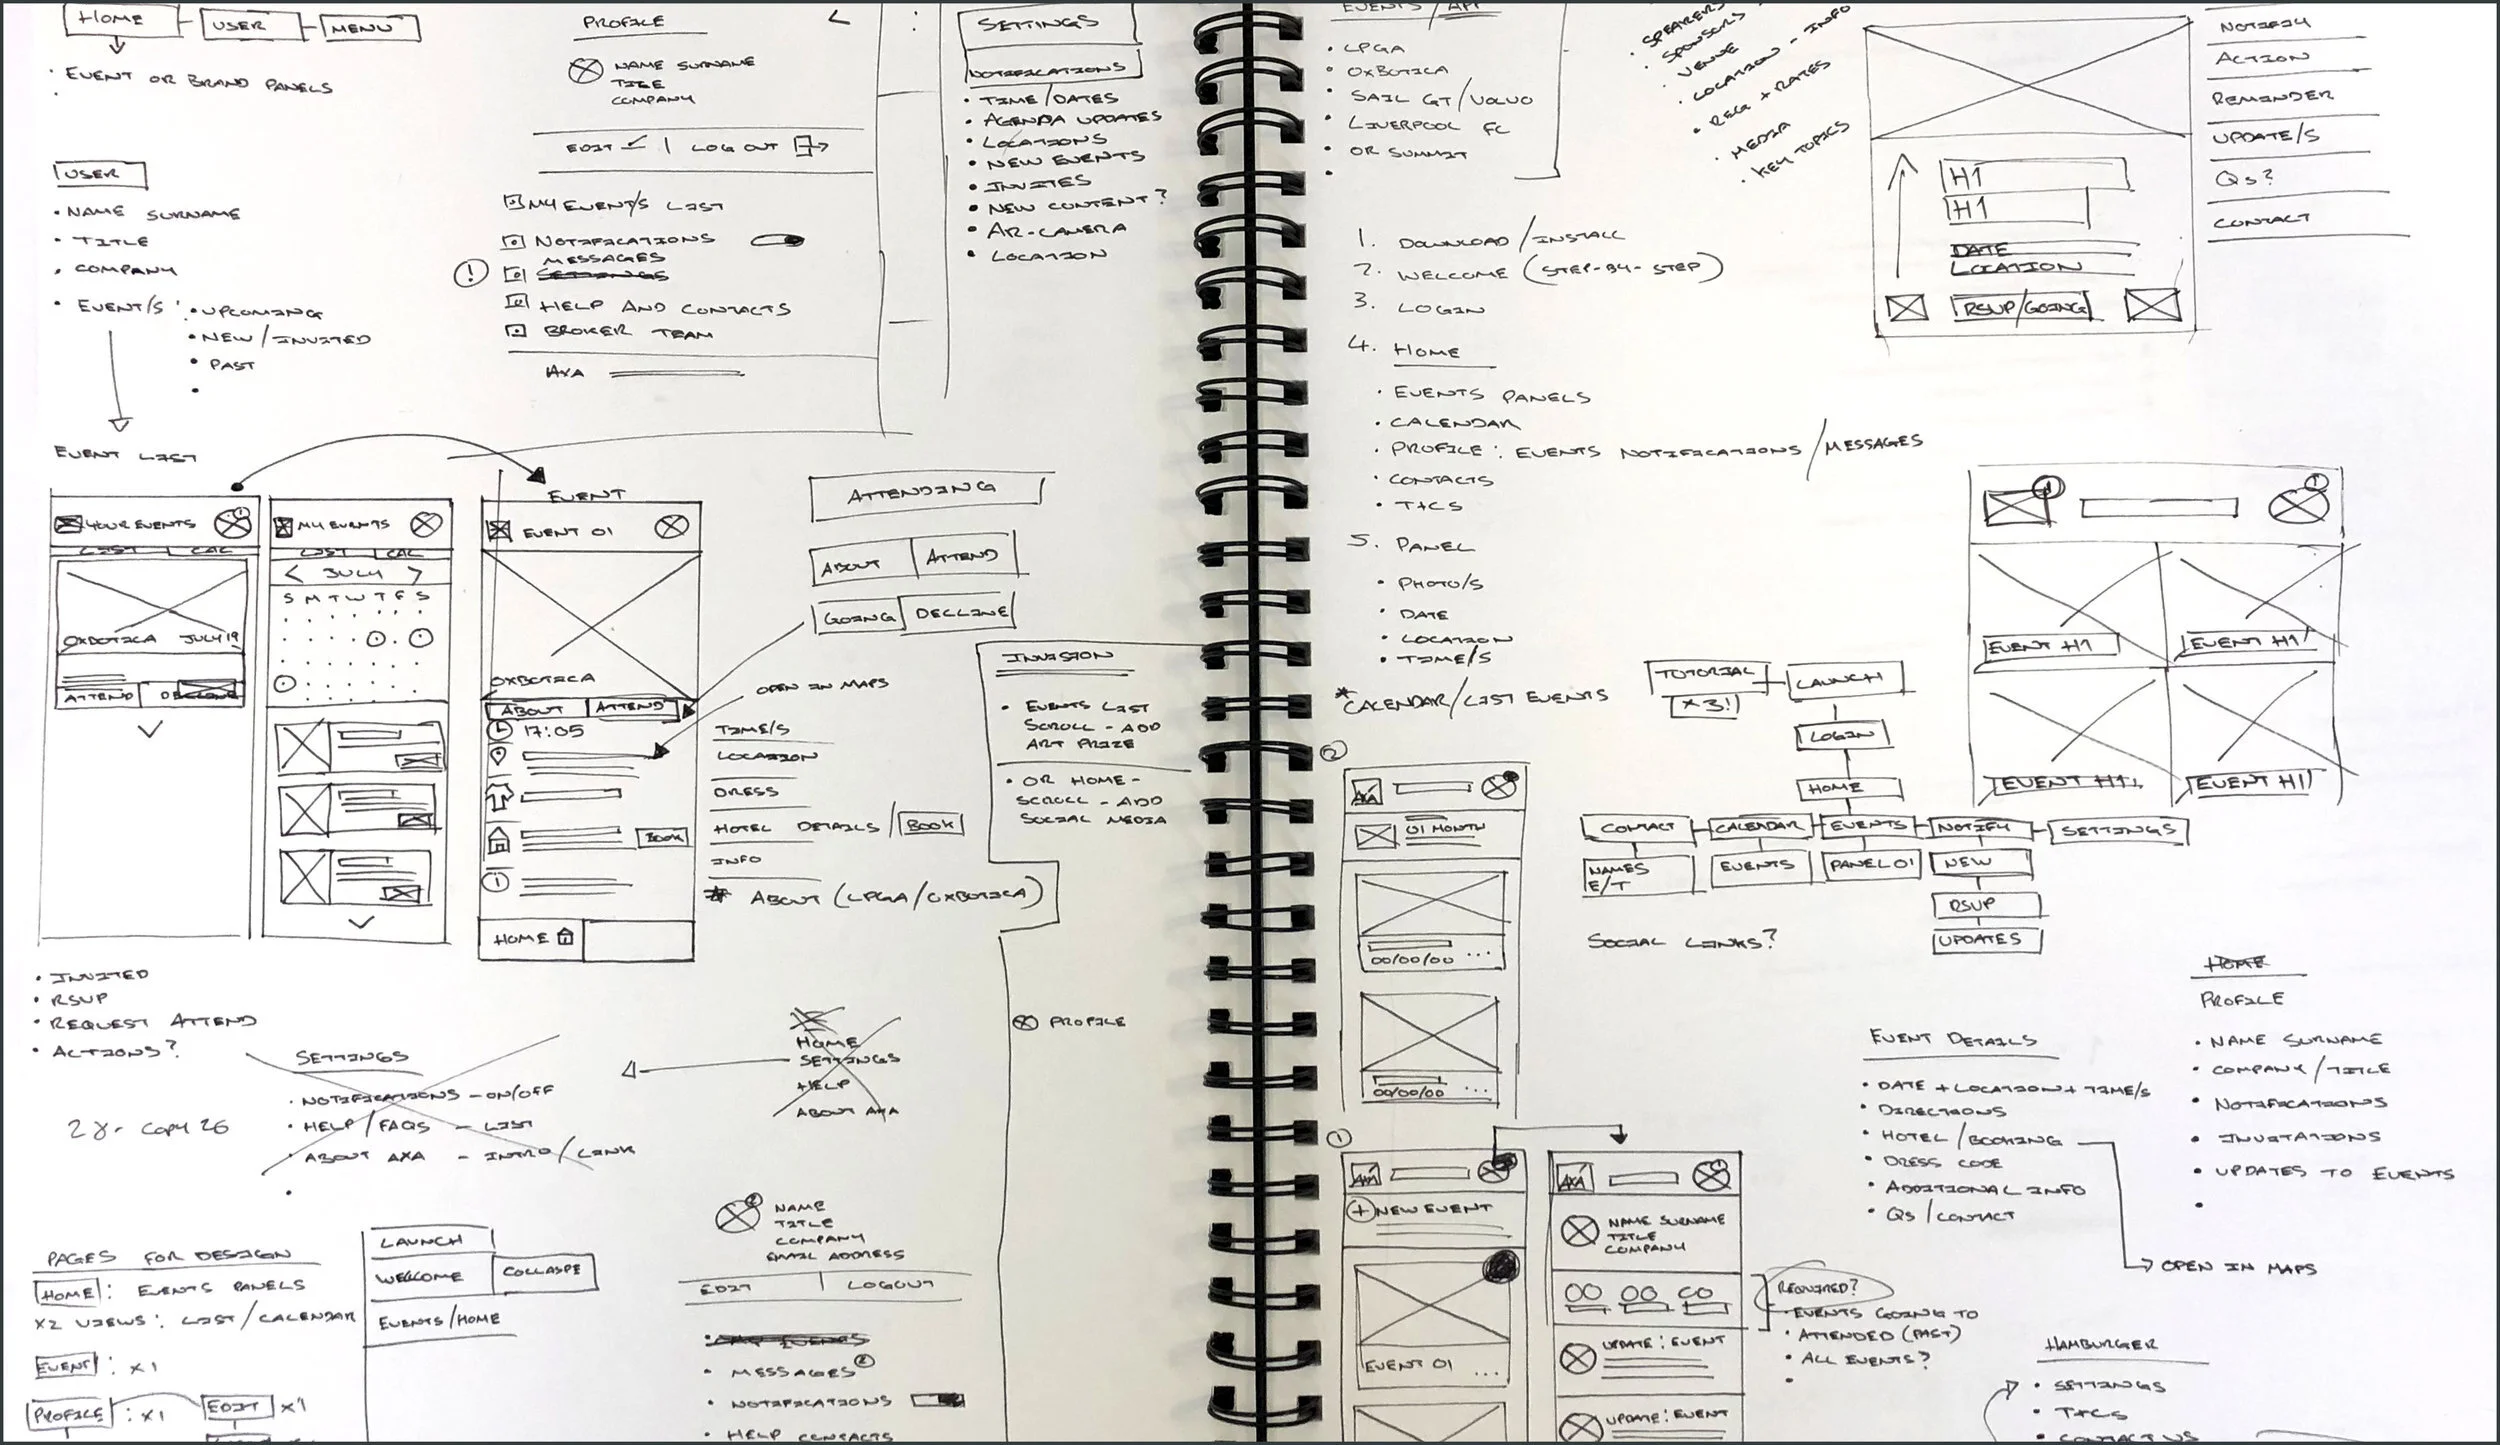 HOME
USER
MENU
• EVENT OR BRAND PANELS
USER
• NAME SURNAME
• TITLE
• COMPANY
• EVENT/S :
• UPCOMING
• NEW/INVITED
• PAST
EVENT LIST
PROFILE
<
NAME SURNAME
TITLE
COMPANY
EDIT | LOG OUT
MY EVENT/S LIST
NOTIFICATIONS
MESSAGES
! SETTINGS
HELP AND CONTACTS
BROKER TEAM
AXA
SETTINGS
NOTIFICATIONS
• TIME/DATES
• AGENDA UPDATES
• LOCATIONS
• NEW EVENTS
• INVITES
• NEW CONTENT?
• AR-CAMERA
• LOCATION
YOUR EVENTS
LIST CAL
OXBOTICA JULY 19
ATTEND DECLINE
MY EVENTS
LIST CAL
< JULY >
S M T W T F S
EVENT
EVENT 01
OXBOTICA
ABOUT ATTEND
17:05
BOOK
HOME
ATTENDING
ABOUT ATTEND
GOING DECLINE
OPEN IN MAPS
TIME/S
LOCATION
DRESS
HOTEL DETAILS / BOOK
INFO
* ABOUT (LPGA/OXBOTICA)
INVISION
• EVENTS LIST
SCROLL - ADD
ART PRIZE
• OR HOME -
SCROLL - ADD
SOCIAL MEDIA
PROFILE
• INVITED
• RSVP
• REQUEST ATTEND
• ACTIONS?
SETTINGS
• NOTIFICATIONS - ON/OFF
• HELP/FAQS - LIST
• ABOUT AXA - INTRO/LINK
HOME
SETTINGS
HELP
ABOUT AXA
PAGES FOR DESIGN
HOME : EVENTS PANELS
X2 VIEWS: LIST/CALENDAR
EVENT : X1
PROFILE : X1
EDIT X1
LAUNCH
WELCOME
COLLASPE
EVENTS/HOME
2
NAME
TITLE
COMPANY
EMAIL ADDRESS
EDIT | LOGOUT
• MESSAGES 2
• NOTIFICATIONS
• HELP CONTACTS
EVENTS/APP
• LPGA
• OXBOTICA
• SAIL GT/VOLVO
• LIVERPOOL FC
• OR SUMMIT
• SPEAKERS
• SPONSORS
• VENUE
• LOCATION - INFO
• REG + RATES
• MEDIA
• KEY TOPICS
H1
H1
DATE
LOCATION
RSVP/GOING
NOTIFY
ACTION
REMINDER
UPDATE/S
QS?
CONTACT
1. DOWNLOAD/INSTALL
2. WELCOME (STEP-BY-STEP)
3. LOGIN
4. HOME
• EVENTS PANELS
• CALENDAR
• PROFILE: EVENTS NOTIFICATIONS/MESSAGES
• CONTACTS
• T+CS
5. PANEL
• PHOTO/S
• DATE
• LOCATION
• TIME/S
* CALENDAR/LIST EVENTS
EVENT H1
EVENT H1
EVENT H1
EVENT H1
TOTORIAL
X 3!
LAUNCH
LOGIN
HOME
CONTACT
CALENDAR
EVENTS
NOTIFY
SETTINGS
NAMES
E/T
EVENTS
PANEL 01
NEW
RSVP
UPDATES
SOCIAL LINKS?
2
AXA
01 MONTH
00/00/00 ...
00/00/00 ...
1
AXA
+ NEW EVENT
EVENT 01 ...
AXA
NAME SURNAME
TITLE
COMPANY
00 00 00
UPDATE: EVENT
UPDATE: EVENT
REQUIRED?
• EVENTS GOING TO
• ATTENDED (PAST)
• ALL EVENTS?
EVENT DETAILS
• DATE + LOCATION + TIME/S
• DIRECTIONS
• HOTEL/BOOKING
• DRESS CODE
• ADDITIONAL INFO
• QS/CONTACT
OPEN IN MAPS
HOME
PROFILE
• NAME SURNAME
• COMPANY/TITLE
• NOTIFICATIONS
• INVITATIONS
• UPDATES TO EVENTS
HAMBURGER
• SETTINGS
• T+CS
• CONTACT US